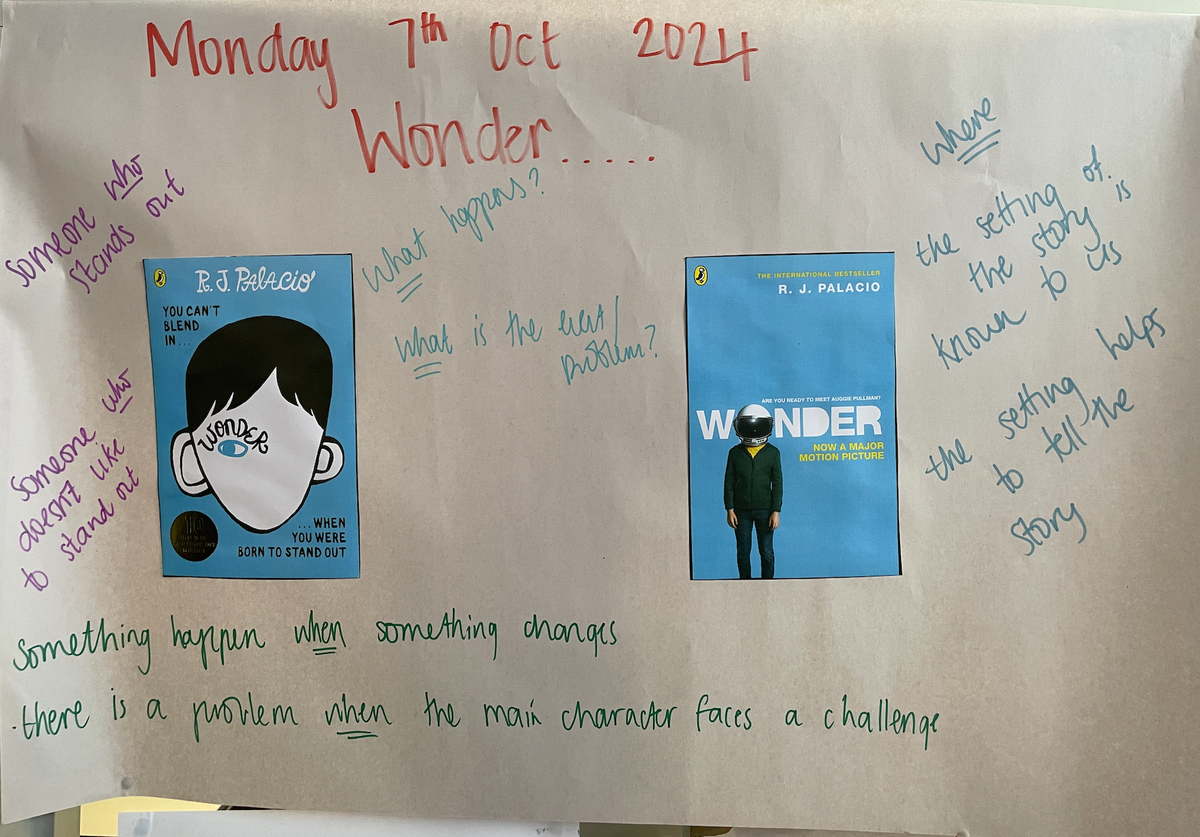 Monday 7th Oct 2024
Wonder.....
Someone who
stands out
someone who
doesn't like
to stand out
What happens?
What is the event/
problem?
where
the setting of
the story is
known to us
the setting helps
to tell the
story
R. J. PALACIO
YOU CAN'T
BLEND
IN...
WONDER
...WHEN
YOU WERE
BORN TO STAND OUT
THE INTERNATIONAL BESTSELLER
R. J. PALACIO
ARE YOU READY TO MEET AUGGIE PULLMAN?
WONDER
NOW A MAJOR
MOTION PICTURE
Something happen when something changes
.there is a problem when the main character faces a challenge